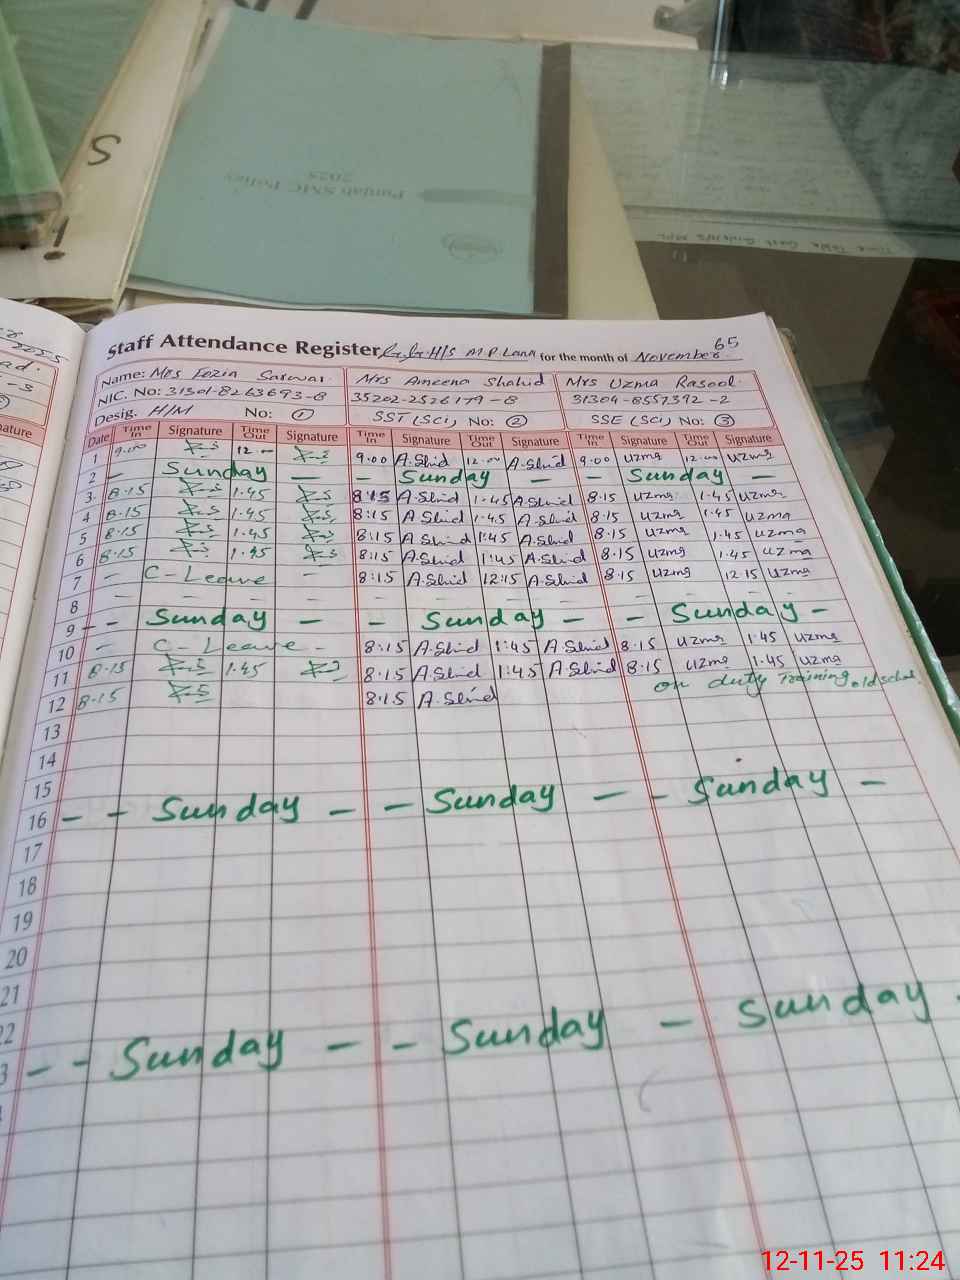 S
Punjab SMC Policy
2025
Time Table
65
Staff Attendance Register G.G.H/S M P Lana for the month of November.
Name: Mrs Fozia Sarwar. Mrs Ameena Shahid Mrs Uzma Rasool.
NIC. No: 31301-8263693-8 35202-2526179-8 31304-8557392-2
Desig. H/M No: 1 SST (Sci) No: 2 SSE (Sci) No: 3
Date Time In Signature Time Out Signature Time In Signature Time Out Signature Time In Signature Time Out Signature
1 9.00 12.00 9.00 A.Shid 12.00 A.Shid 9.00 uzma 12.00 uzma
2 - Sunday - - Sunday - - Sunday -
3 8.15 1.45 8:15 A.Shid 1.45 A.Shid 8.15 uzma 1.45 uzma
4 8.15 1.45 8:15 A.Shid 1.45 A.Shid 8.15 uzma 1.45 uzma
5 8.15 1.45 8:15 A.Shid 1:45 A.Shid 8.15 uzma 1.45 uzma
6 8.15 1.45 8:15 A.Shid 1:45 A.Shid 8.15 uzma 1.45 uzma
7 - C-Leave - 8:15 A.Shid 12:15 A.Shid 8.15 uzma 12.15 uzma
8 - - - - - - - - - - - -
9 - - Sunday - - Sunday - - Sunday -
10 - C-Leave - 8:15 A.Shid 1:45 A.Shid 8.15 uzma 1.45 uzma
11 8.15 1.45 8:15 A.Shid 1:45 A.Shid 8.15 uzma 1.45 uzma
12 8.15 8:15 A.Shid on duty Training old
13
14
15
16 - - Sunday - - Sunday - - Sunday -
17
18
19
20
21
22
3 - - Sunday - - Sunday - Sunday -
12-11-25 11:24